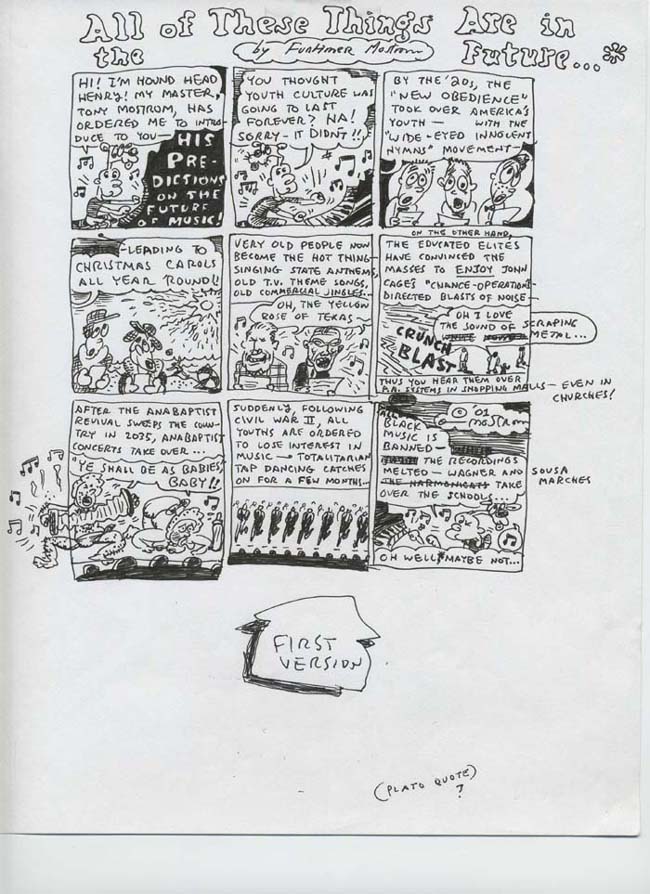 All of These Things Are in
the Future...*
by Furthmer Mostrom
HI! I'M HOUND HEAD
HENRY! MY MASTER,
TONY MOSTROM, HAS
ORDERED ME TO INTRO-
DUCE TO YOU—
HIS
PRE-
DICTIONS
ON THE
FUTURE
OF MUSIC!
YOU THOUGHT
YOUTH CULTURE WAS
GOING TO LAST
FOREVER? HA!
SORRY - IT DIDN'T!!
BY THE '20s, THE
"NEW OBEDIENCE"
TOOK OVER AMERICA'S
YOUTH — WITH THE
"WIDE-EYED INNOCENT
HYMNS" MOVEMENT—
-LEADING TO
CHRISTMAS CAROLS
ALL YEAR 'ROUND!!
VERY OLD PEOPLE NOW
BECOME THE HOT THING—
SINGING STATE ANTHEMS,
OLD T.V. THEME SONGS,
OLD COMMERCIAL JINGLES...
OH, THE YELLOW
ROSE OF TEXAS~
ON THE OTHER HAND,
THE EDUCATED ELITES
HAVE CONVINCED THE
MASSES TO ENJOY JOHN
CAGE'S "CHANCE-OPERATION"-
DIRECTED BLASTS OF NOISE—
OH I LOVE
THE SOUND OF SCRAPING
METAL...
CRUNCH
BLAST
THUS YOU HEAR THEM OVER
P.A. SYSTEMS IN SHOPPING MALLS — EVEN IN
CHURCHES!
AFTER THE ANABAPTIST
REVIVAL SWEEPS THE COUN-
TRY IN 2025, ANABAPTIST
CONCERTS TAKE OVER...
"YE SHALL BE AS BABIES,
BABY!!
SUDDENLY, FOLLOWING
CIVIL WAR II, ALL
YOUTHS ARE ORDERED
TO LOSE INTEREST IN
MUSIC — TOTALITARIAN
TAP DANCING CATCHES
ON FOR A FEW MONTHS...
© 01
mostrom
BLACK
MUSIC IS
BANNED—
THE RECORDINGS
MELTED — WAGNER AND SOUSA
MARCHES
THE HARMONICATS TAKE
OVER THE SCHOOLS...
OH WELL, MAYBE NOT...
FIRST
VERSION
(PLATO QUOTE)
?